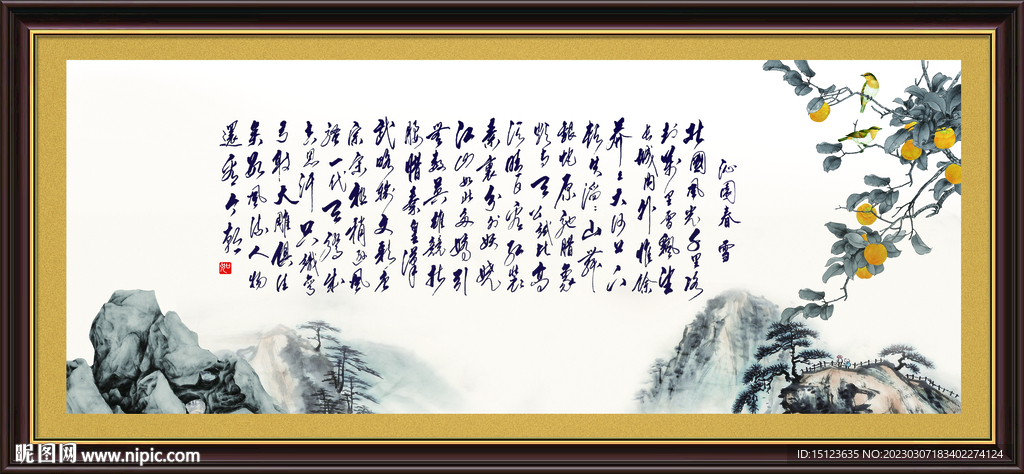 沁园春 雪
北國風光千里冰
封萬里雪飄望
长城内外惟餘
莽々大河上下
頓失滔々山舞
銀蛇原馳腊象
欲与天公試比高
須晴日看红裝
素裹分外妖嬈
江山如此多嬌引
無數英雄競折
腰惜秦皇漢
武略輸文彩唐
宗宋祖稍逊風
騷一代天驕成
吉思汗只識彎
弓射大雕俱往
矣數風流人物
還看今朝
昵图网 www.nipic.com
ID:15123635 NO:20230307183402274124